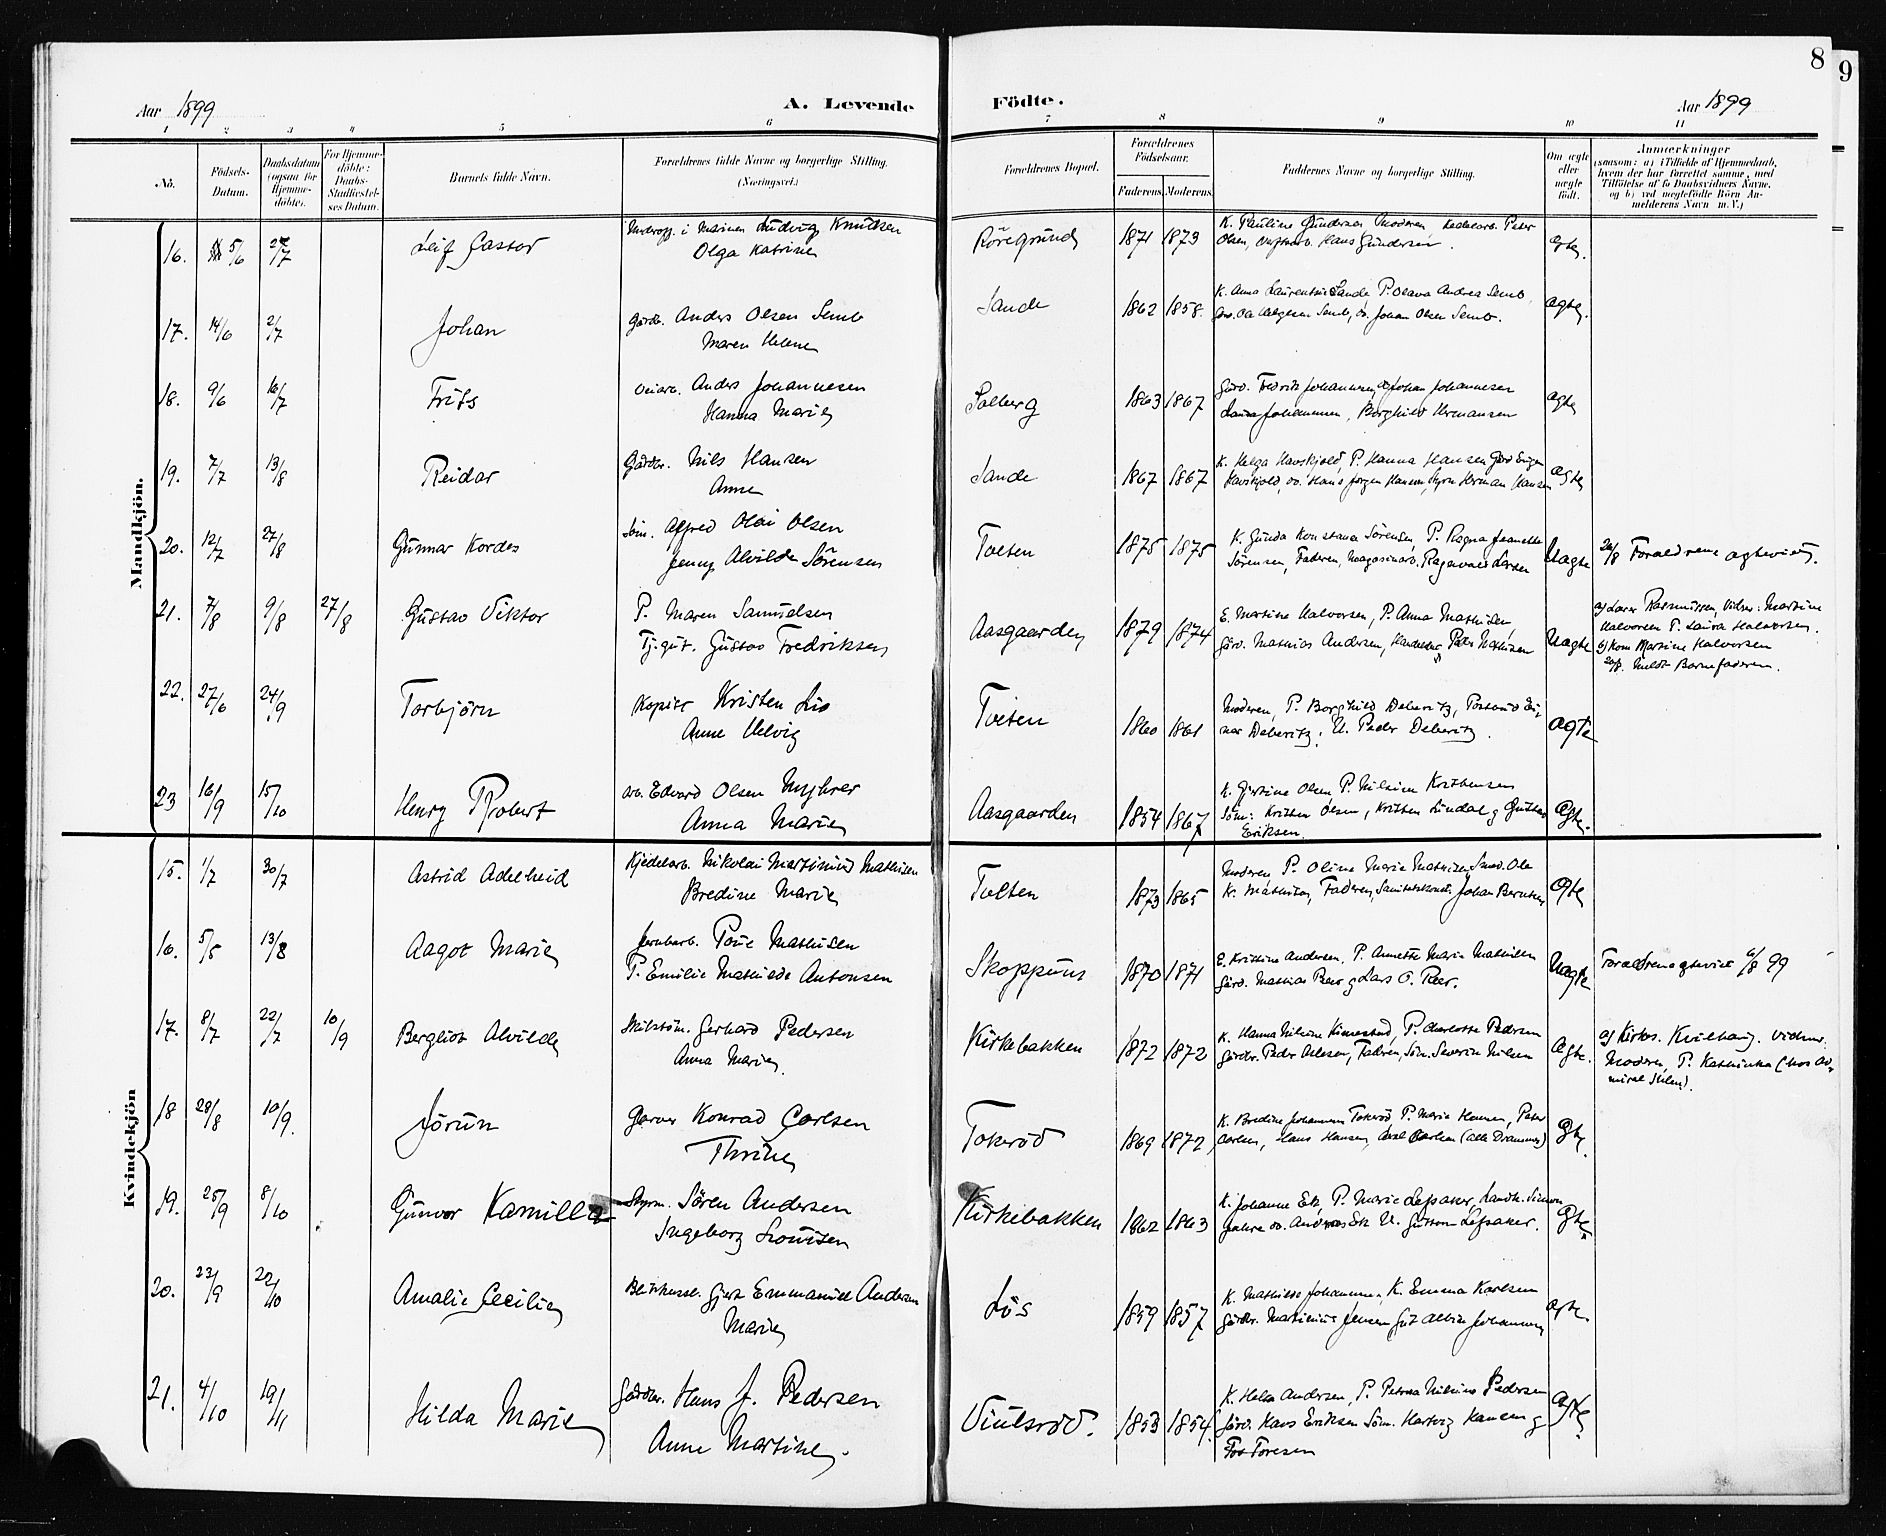 8
9
Aar 1899
A. Levende
Födte.
Aar 1899
1 2 3 4 5 6 7 8 9 10 11
No.
Födsels-
Datum.
Daabsdatum
(ogsaa for
Hjemme-
döbte).
For Hjemme-
döbte:
Daabs-
Stadfæstel-
ses Datum.
Barnets fulde Navn.
Forældrenes fulde Navne og borgerlige Stilling.
(Næringsvei.)
Forældrenes Bopæl.
Forældrenes
Födselsaar.
Faderens. Moderens.
Faddernes Navne og borgerlige Stilling.
Om ægte
eller
uægte
födt.
Anmærkninger
(saasom: a) i Tilfælde af Hjemmedaab,
hvem der har forrettet samme, med
Tilföielse af to Daabsvidners Navne,
og b) ved uægtefödte Börn An-
melderens Navn m. V.)
Mandkjön.
16. 5/6 2/7 Leif Castor
i Marinen Ludvig Knudsen
Olga Katrine
Röregrund 1871 1873
K. Pauline Gundersen Moderen Kedelarb. Peter
Olsen, Hans Gundersen.
ægte.
17. 14/6 2/7 Johan
Gårdb. Anders Olsen Semb
Maren Helene
Sande 1862 1858.
K. Anna Laurentine Sande, P. Olava Andrea Semb,
Semb, Johan Olsen Semb.
ægte.
18. 9/6 16/7 Frits
Anders Johannesen
Hanna Marie
Solberg 1863 1867
Gårdb. Fredrik Johannesen og Johan Johannesen
Laura Johannesen, Borghild Hermansen
ægte
19. 7/7 13/8 Reidar
Gårdbr. Nils Hansen
Anne
Sande 1867 1867
K. Helga Havskjold, P. Hanna Hansen
Havskjold, Hans Jörgen Hansen, Styrm Herman Hansen
ægte
20. 12/7 27/8 Gunnar Kordes
Söm. Alfred Olai Olsen
Jenny Alvilde Sörensen
Tveten 1875 1875
K. Gunda Konstance Sörensen, P. Ragna Jeanette
Sörensen, Faderen, Magasinarb. Ragnvald Larsen
Uægte
26/8 Foraeldrene ægteviet.
21. 7/8 9/8 27/8 Gustav Viktor
P. Maren Samuelsen
Tj.gut. Gustav Fredriksen
Aasgaarden 1879 1874
E. Martine Halvorsen, P. Anna Mathisen,
Gård. Mathias Andersen, Peder Mathisen
Uægte
a) Lærer Rasmussen, Vidner: Martine
Halvorsen P. Laura Halvorsen.
b) Kone Martine Halvorsen
meldt Barnefaderen.
22. 27/6 24/9 Torbjörn
Kristen Lie
Anne Helvig
Tveten 1860 1861
Moderen, P. Borghild Deberitz, Ei-
nar Deberitz, U. Peder Deberitz.
ægte
23 16/9 15/10 Henry Robert
Arb. Edvard Olsen Myhrer
Anna Marie
Aasgaarden 1854 1867
K. Gjertine Olsen P. Kristensen
Söm: Kristen Olsen, Kristen Lindal og Gustav
Eriksen.
ægte.
Kvindekjön
15. 1/7 30/7 Astrid Adelheid
Kjedelarb. Nikolai Martinius Mathisen
Bredine Marie
Tveten 1873 1865
Moderen P. Oline Marie Mathisen, Ole
Kr. Mathisen, Faderen, Johan Berntsen
ægte
16. 5/5 13/8 Aagot Marie
Jernbarb. Poul Mathisen
P. Emilie Mathilde Antonsen
Skoppum 1870 1871
E. Kristine Andersen, P. Annette Marie Mathisen
Gård. Mathias Reer og Lars O. Reer.
Uægte
Forældrene ægteviet 6/8 99
17. 8/7 22/7 10/9 Bergliot Alvilde
Gerhard Pedersen
Anna Marie
Kirkebakken 1872 1872
K. Hanna Nilsine, P. Charlotte Pedersen
Gårdbr. Peder Faderen, Söm. Severin Nilsen
Ægte.
a) Kirkes. Kvilhaug. Vidner.
Moderen, P. Kathinka (hos Ad-
miral).
18 28/8 10/9. Jörun
Garver Konrad Carlsen
Thrine
Tokeröd 1869 1872
K. Bredine Johannesen Tokeröd, P. Marie Hansen, Peter
Carlsen, Hans Hansen, Axel Carlsen (alle Drammen)
Ægte.
19. 25/9 8/10 Gunvor Kamilla
Styrm. Sören Andersen
Ingeborg Lovise
Kirkebakken 1862 1863
K. Johanne Eik, P. Marie Lefsaker, Landh. Simon
Andreas Eik U. Lefsaker.
Ægte
20. 23/9 22/10 Amalie Cecilie
Gjert Emmanuel Andersen
Marie
Lös 1859 1857
K. Mathilde Johannesen, K. Emma Karlsen
Gårdbr. Martinius Jensen Gut Albin Johannesen
ægte.
21. 4/10 19/11 Hilda Marie
Gårdbr. Hans J. Pedersen
Anne Martine.
Viulsröd. 1853 1854
K. Helene Andersen, P. Petrea Nilsine Pedersen
Gård. Hans Eriksen Söm. Hartvig Hansen og
Toresen
Ægte.